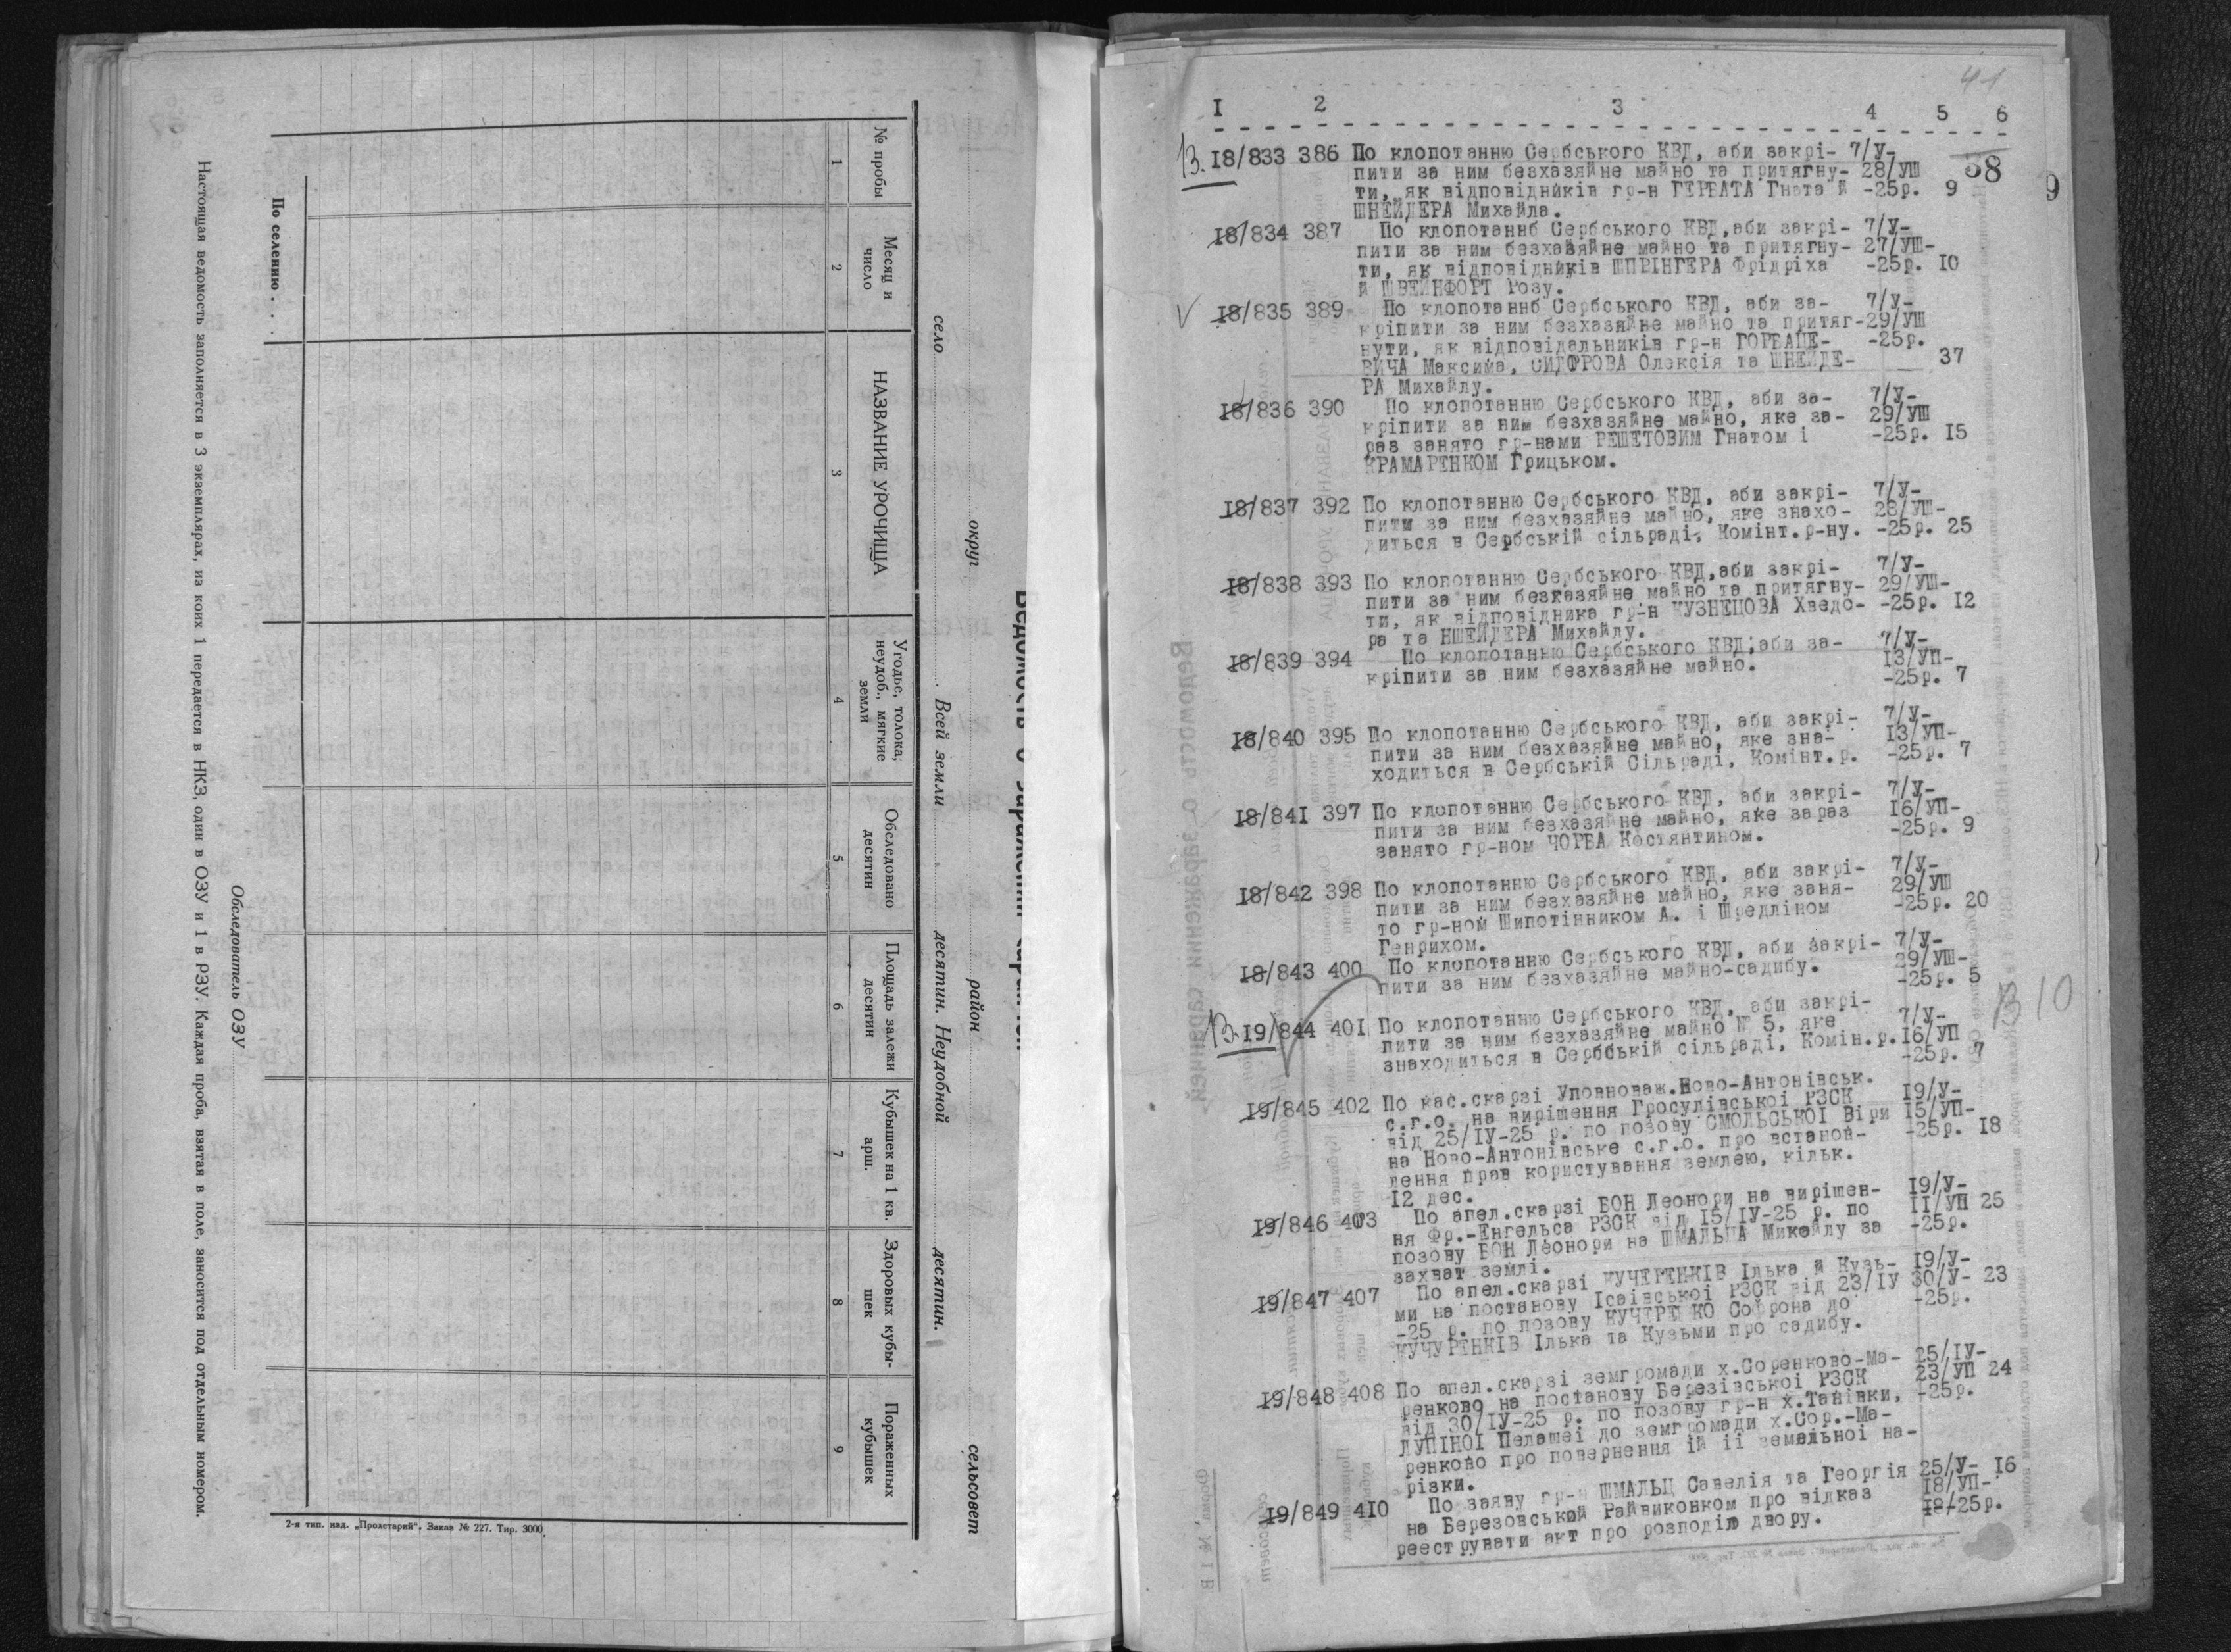 Ведомость о заражении саранчей
округ район сельсовет
село Всей земли десятин. Неудобной десятин.
№ пробы
Месяц и число
НАЗВАНИЕ УРОЧИЩА
Угодье, толока, неудоб., мягкие земли
Обследовано десятин
Площадь залежи десятин
Кубышек на 1 кв. арш.
Здоровых кубышек
Пораженных кубышек
1 2 3 4 5 6 7 8 9
По селению . . .
Обследователь ОЗУ
Настоящая ведомость заполняется в 3 экземплярах, из коих 1 передается в НКЗ, один в ОЗУ и 1 в РЗУ. Каждая проба, взятая в поле, заносится под отдельным номером.
2-я тип. изд. „Пролетарий“. Заказ № 227. Тир. 3000
41
I 2 3 4 5 6
13. I8/833 386 По клопотанню Сербського КВД, аби закрі- 7/У-
пити за ним безхазяйне майно та притягну- 28/УШ 38
ти, як відповідників гр-н ГЕРБАТА Гната й -25р. 9 9
ШНЕЙДЕРА Михайла.
I8/834 387 По клопотаннб Сербського КВД,аби закрі- 7/У-
пити за ним безхазяйне майно та притягну- 27/УШ-
ти, як відповідників ШПРІНГЕРА Фрідріха -25р. I0
й ШВЕЙНФОРТ Розу.
V I8/835 389 По клопотаннб Сербського КВД, аби за- 7/У-
кріпити за ним безхазяйне майно та притяг-29/УШ
нути, як відповідальників гр-н ГОРБАЦЕ- -25р.
ВИЧА Максима, СИДФРОВА Олексія та ШНЕЙДЕ- 37
РА Михайлу.
I8/836 390 По клопотанню Сербського КВД, аби за- 7/У-
кріпити за ним безхазяйне майно, яке за- 29/УШ
раз занято гр-нами РЕШЕТОВИМ Гнатом і -25р. I5
КРАМАРЕНКОМ Грицьком.
I8/837 392 По клопотанню Сербського КВД, аби закрі- 7/У-
пити за ним безхазяйне майно, яке знахо- 28/УШ-
диться в Сербській сільраді, Комінт.р-ну. -25р. 25
I8/838 393 По клопотанню Сербського КВД,аби закрі- 7/У-
пити за ним безхазяйне майно та притягну- 29/УШ-
ти, як відповідника гр-н КУЗНЕЦОВА Хведо- -25р. I2
ра та НШЕЙДЕРА Михайлу.
I8/839 394 По клопотанню Сербського КВД,аби за- 7/У-
кріпити за ним безхазяйне майно. I3/УП-
-25р. 7
I8/840 395 По клопотанню Сербського КВД, аби закрі- 7/У-
пити за ним безхазяйне майно, яке зна- I3/УП-
ходиться в Сербській Сільраді, Комінт.р. -25р. 7
I8/84I 397 По клопотанню Сербського КВД, аби закрі- 7/У-
пити за ним безхазяйне майно, яке зараз I6/УП-
занято гр-ном ЧОРБА Костянтином. -25р. 9
I8/842 398 По клопотанню Сербського КВД, аби закрі- 7/У-
пити за ним безхазяйне майно, яке заня- 29/УШ
то гр-ном Шипотінником А. і Шредліном -25р. 20
Генрихом.
I8/843 400 По клопотанню Сербського КВД, аби закрі- 7/У-
пити за ним безхазяйне майно-садибу. 29/УШ-
-25р. 5
13. I9/844 40I По клопотанню Сербського КВД, аби закрі- 10
пити за ним безхазяйне майно № 5, яке 7/У-
знаходиться в Сербській сільраді, Комін.р.I6/УП
-25р. 7
I9/845 402 По кас.скарзі Уповноваж.Ново-Антонівськ.
с.г.о. на вирішення Гросулівської РЗСК I9/У-
від 25/ІУ-25 р. по позову СМОЛЬСЬКОЇ Віри I5/УП-
на Ново-Антонівське с.г.о. про встанов- -25р. I8
лення прав користування землею, кільк.
I2 дес.
I9/846 403 По апел.скарзі БОН Леонори на вирішен- I9/У-
ня Фр.-Енгельса РЗСК від I5/ІУ-25 р. по II/УП 25
позову БОН Леонори на ШМАЛЬЦА Миколу за -25р.
захват землі.
I9/847 407 По апел.скарзі КУЧЕРЕНКІВ Ілька й Кузь- I9/У-
ми на постанову Ісаівської РЗСК від 23/ІУ 30/У- 23
-25 р. по позову КУЧЕРЕНКО Софрона до -25р.
КУЧУРЕНКІВ Ілька та Кузьми про садибу.
I9/848 408 По апел.скарзі земгромади х.Соренково-Ма- 25/ІУ-
ренково на постанову Березівської РЗСК 23/УП 24
від 30/ІУ-25 р. по позову гр-н х.Танівки, -25р.
ЛУПІНОЇ Пелашеі до земгромади х.Сор.-Ма-
ренково про повернення ій іі земельноі на-
різки.
I9/849 4I0 По заяву гр-н ШМАЛЬЦ Савелія та Георгія 25/У- I6
на Березовський Райвиконком про відказ I8/УП-
реєструвати акт про розподіл двору. I8/25р.